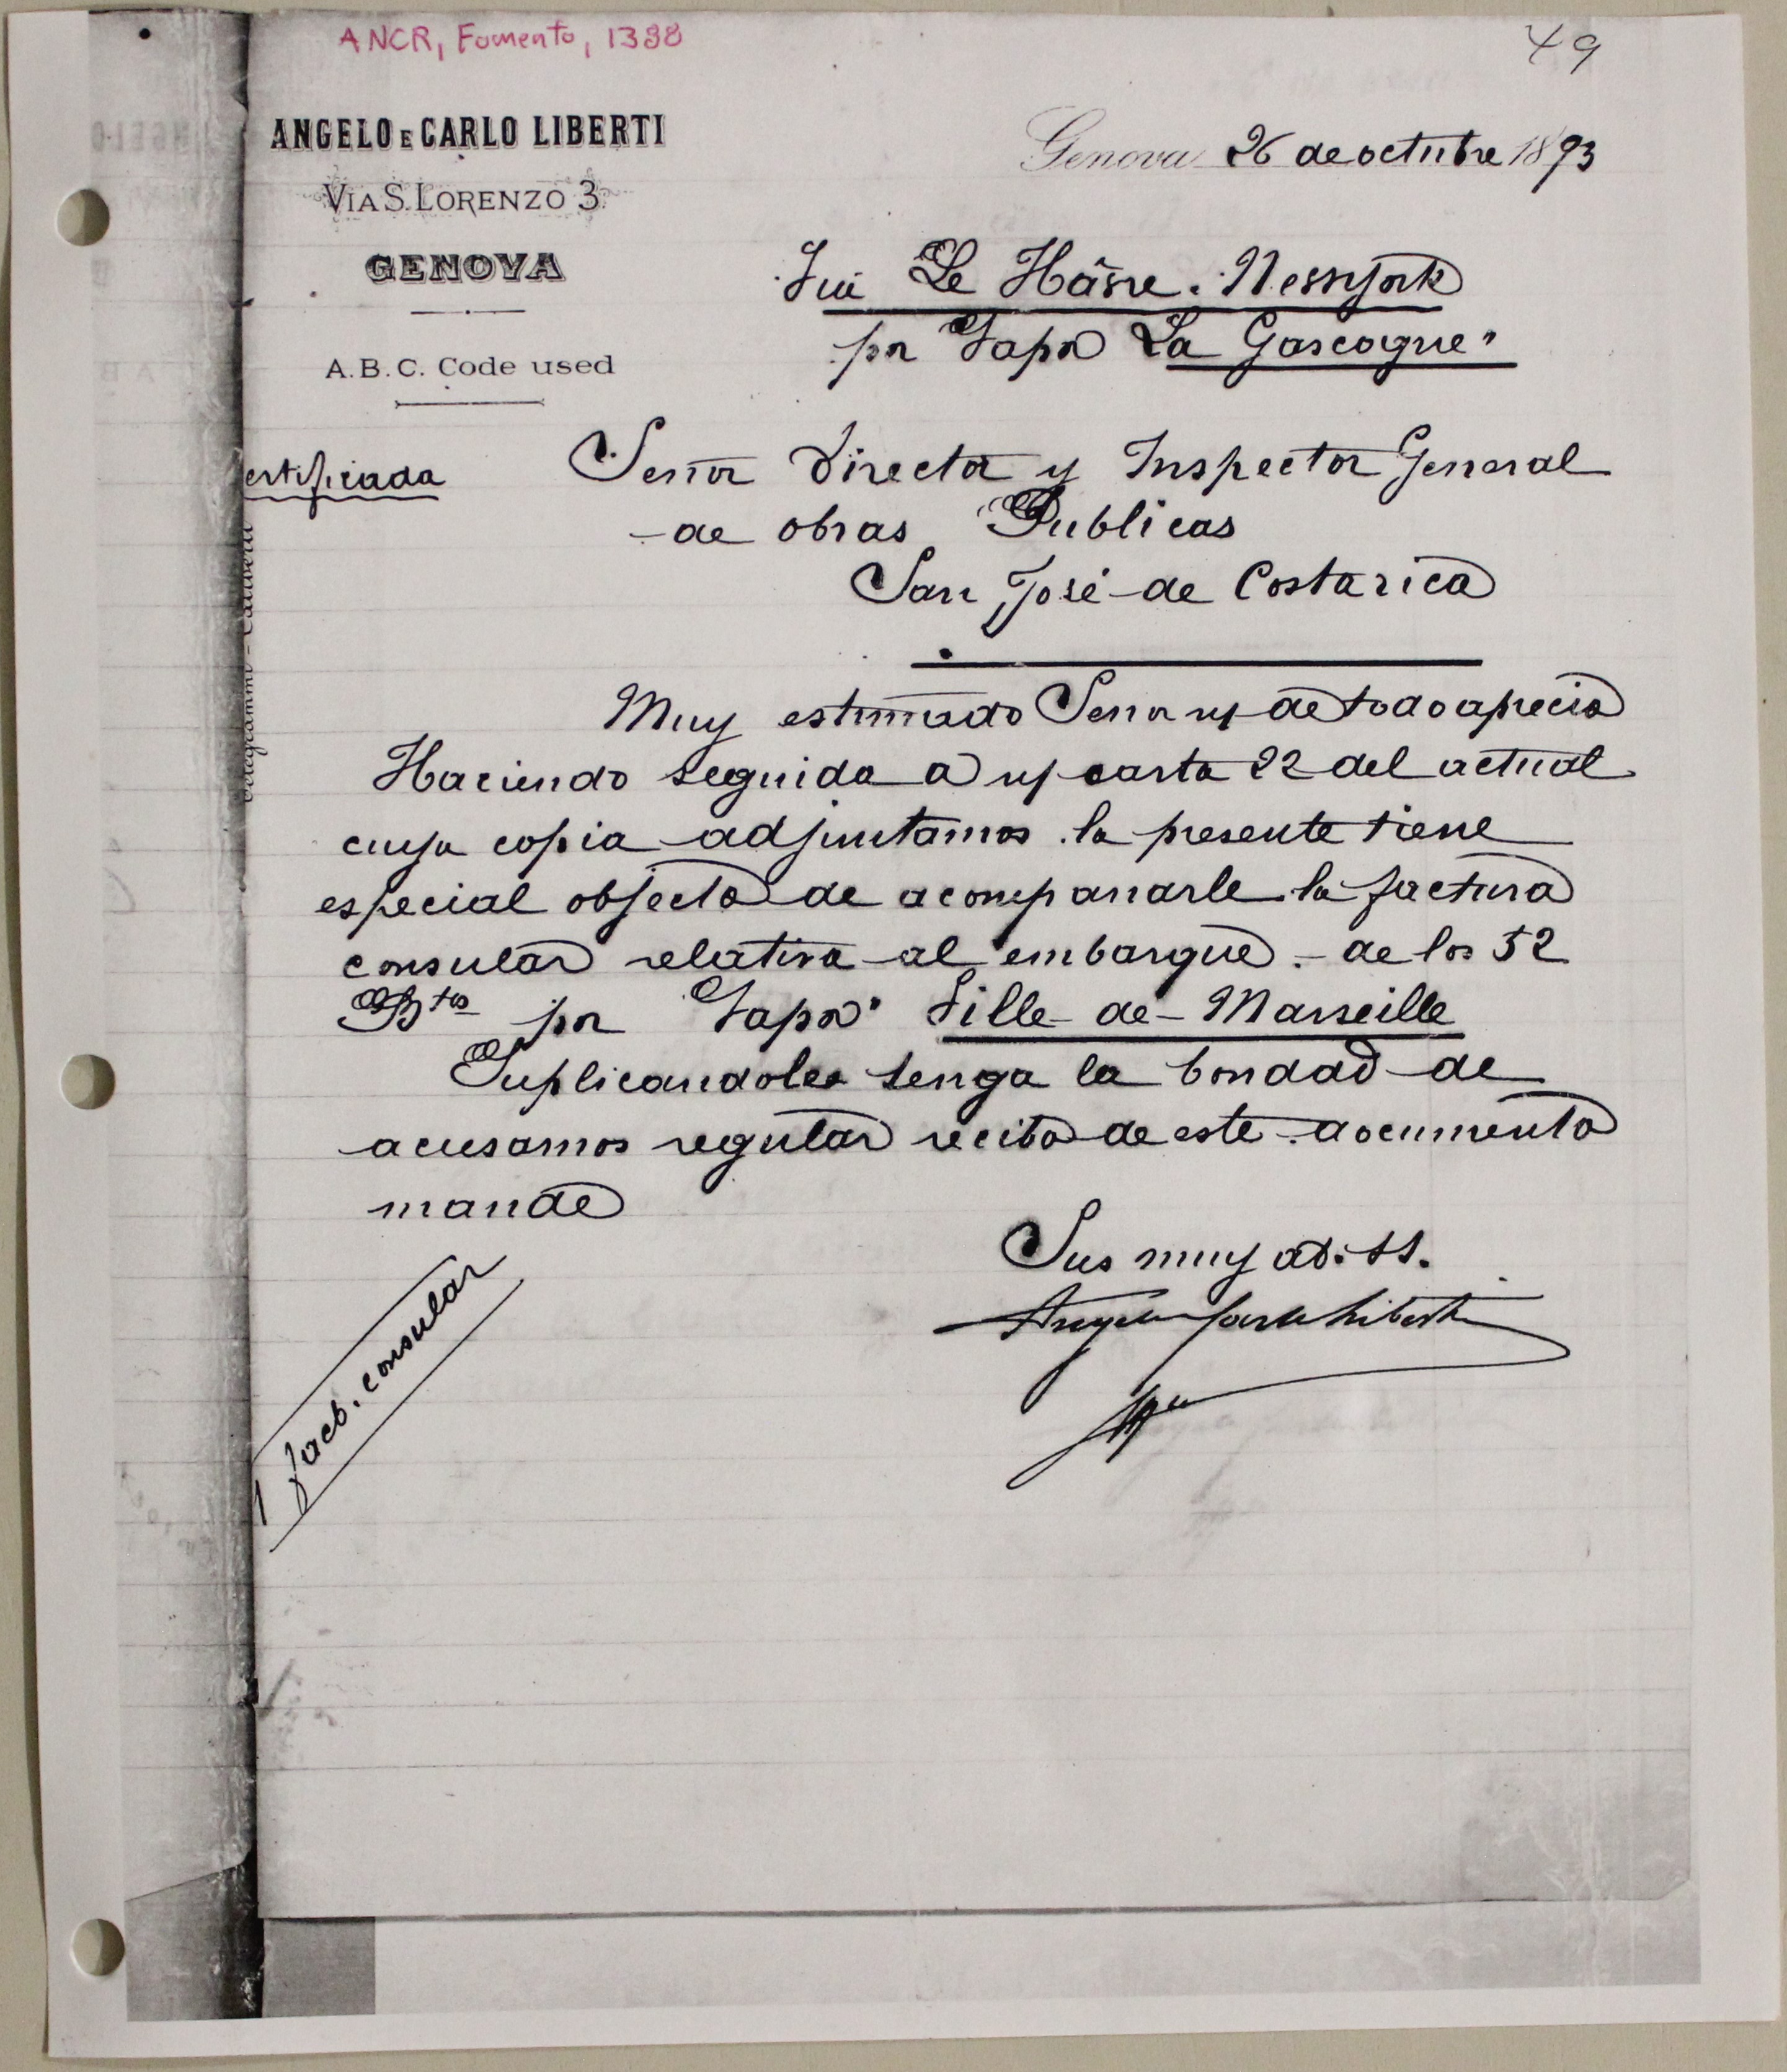 ANCR, Fomento, 1388
49
ANGELO E CARLO LIBERTI
VIA S. LORENZO 3.
GENOVA
A.B.C. Code used
Genova 26 de octubre 1893
Via Le Hâvre. Newyork
por Vapor La Gascogne"
ertificada
Senor Director y Inspector General
de obras Publicas
San José de Costarica
Muy estimado Senor y de todo aprecio
Haciendo seguida a n/ carta 22 del actual
cuya copia adjuntamos la presente tiene
especial objecto de acompanarle la factura
consular relativa al embarque de los 52
Btos por Vapor Ville de Marseille
Suplicandoles tenga la bondad de
acusarnos regular recibo de este documento
mande
Sus muy at. ss.
Angelo Carlo Liberti
1 fact. consular